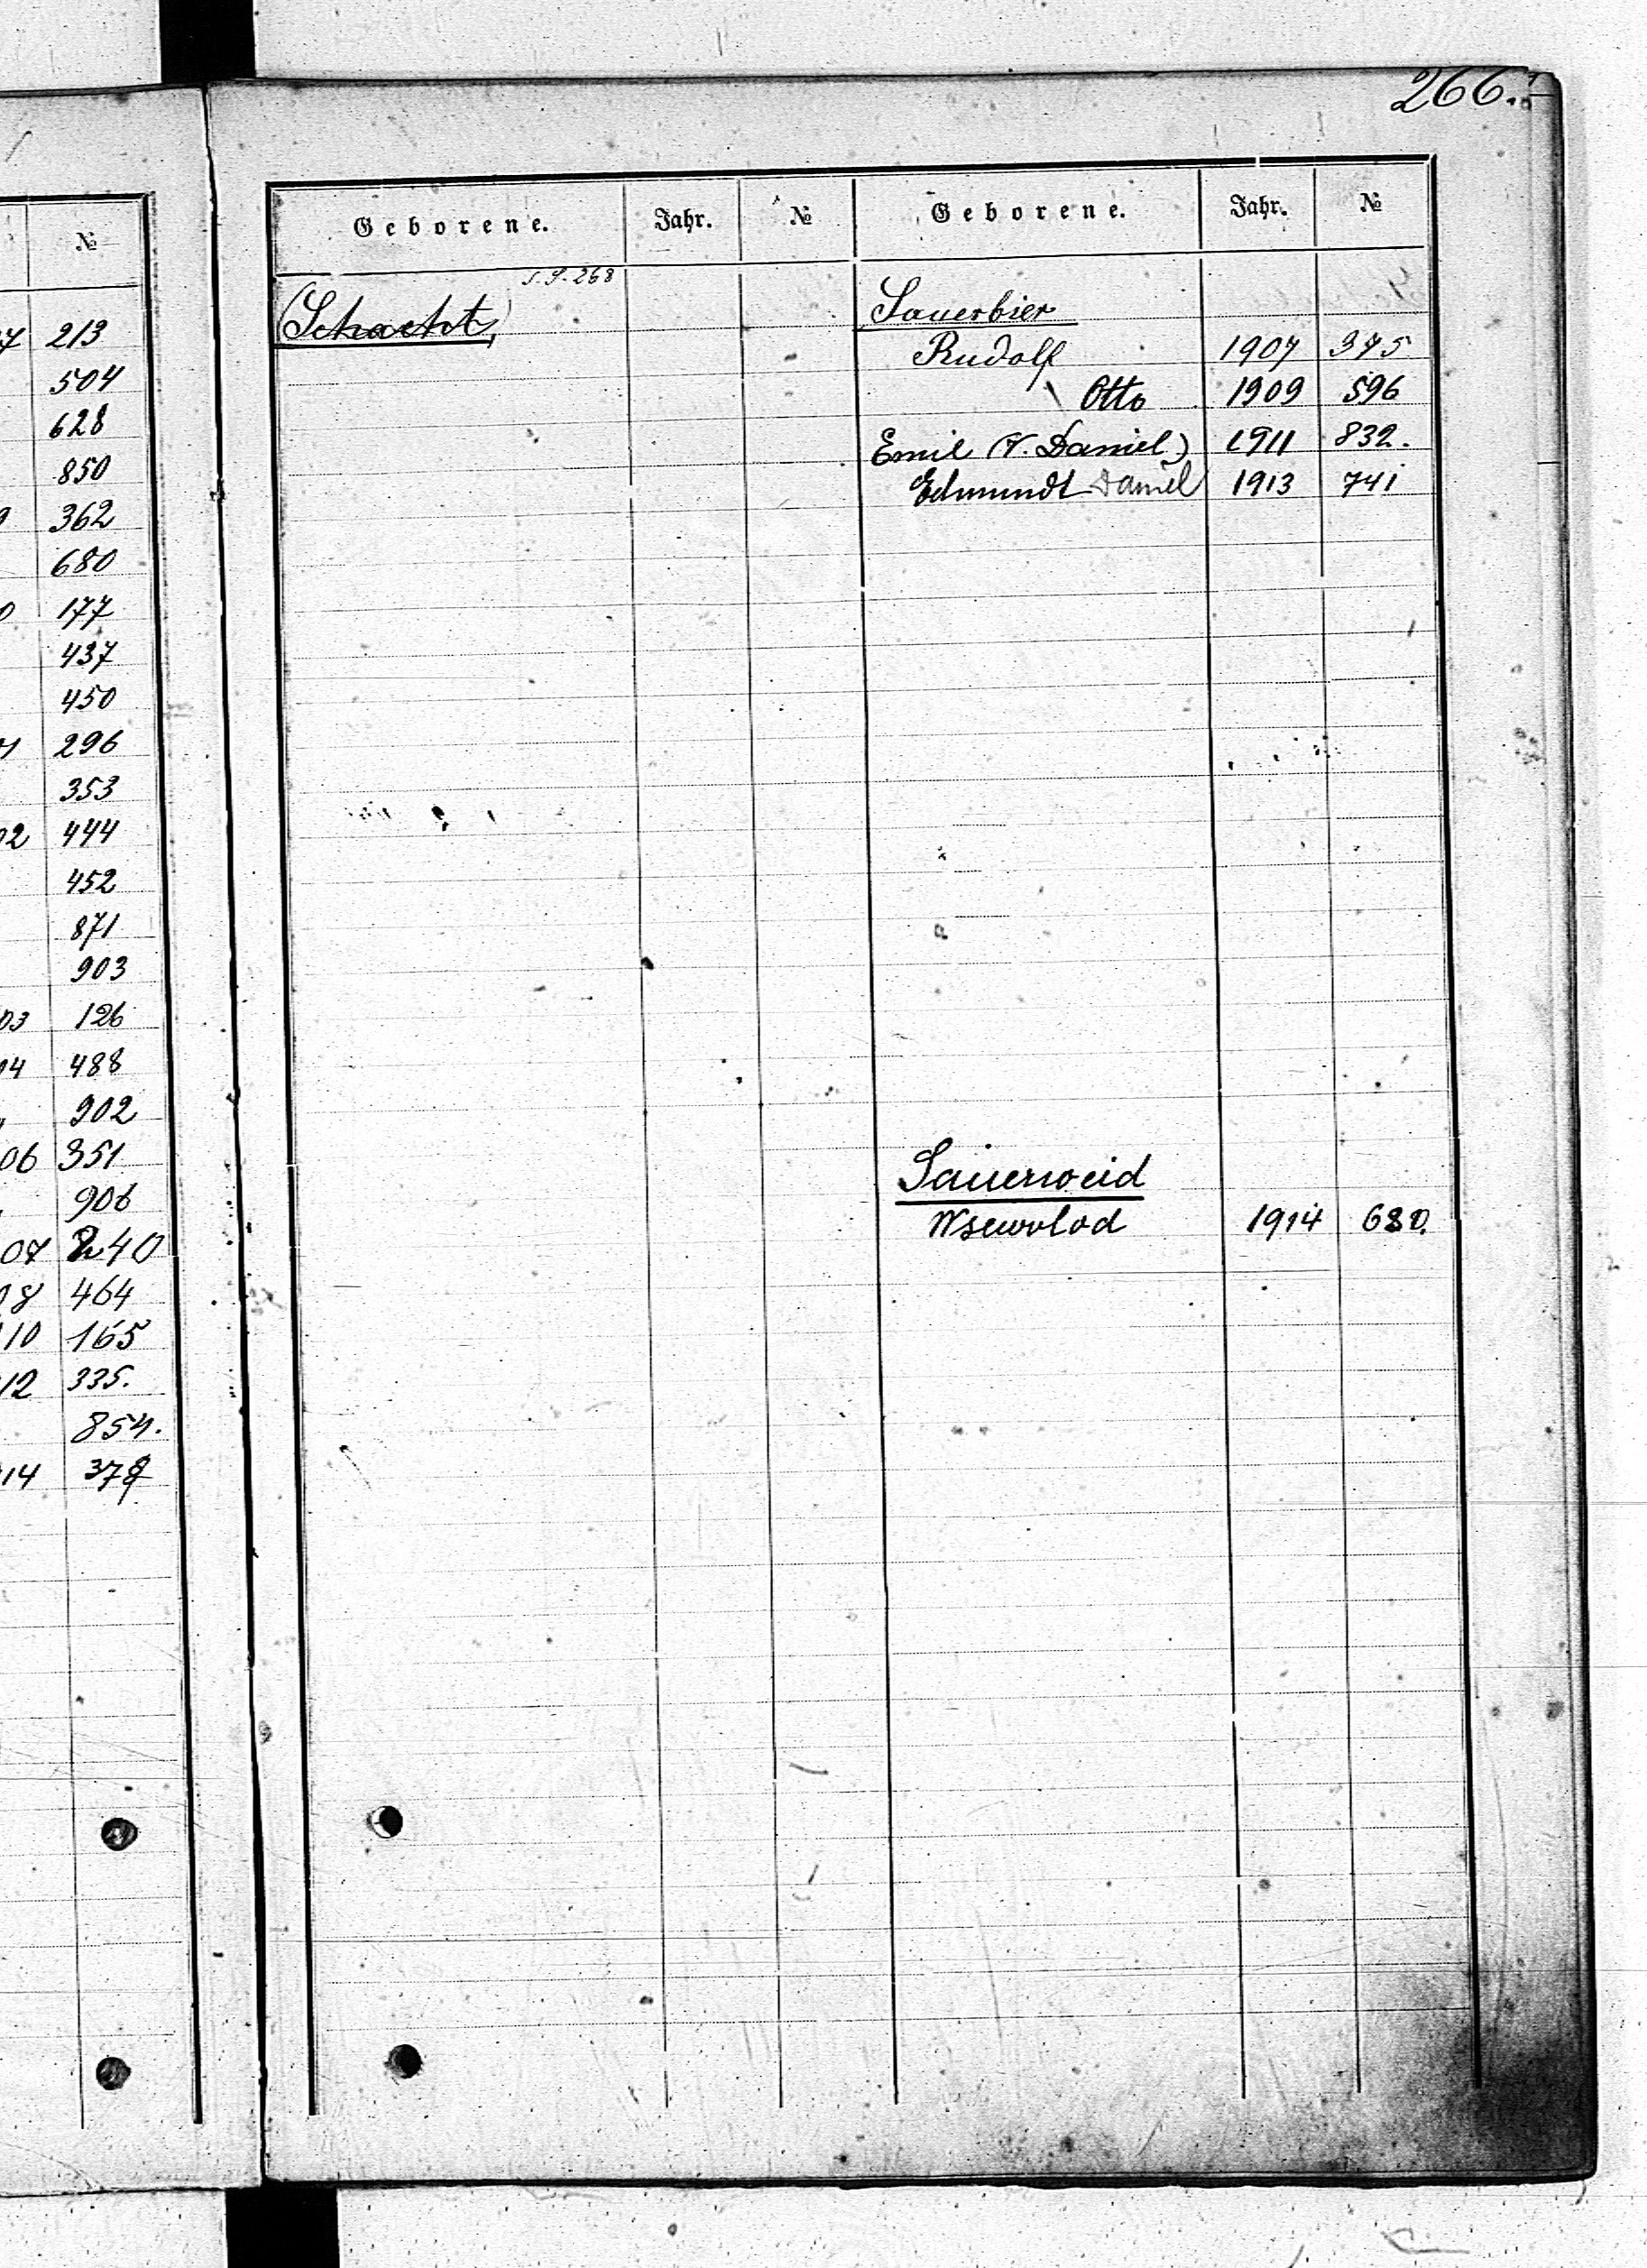 266.
№
7 213
504
628
850
9 362
680
0 177
437
450
1 296
353
02 444
452
871
903
03 126
04 488
" 902
06 351
906
07 240
08 464
110 165
12 335.
854.
14 378
Geborene. Jahr. № Geborene. Jahr. №
S. S. 268
(Schacht)
Sauerbier
Rudolf 1907 375
Otto 1909 596
Emil (V. Daniel) 1911 832.
Edmundt Daniel 1913 741
Sauerweid
Wsewolod 1914 680.